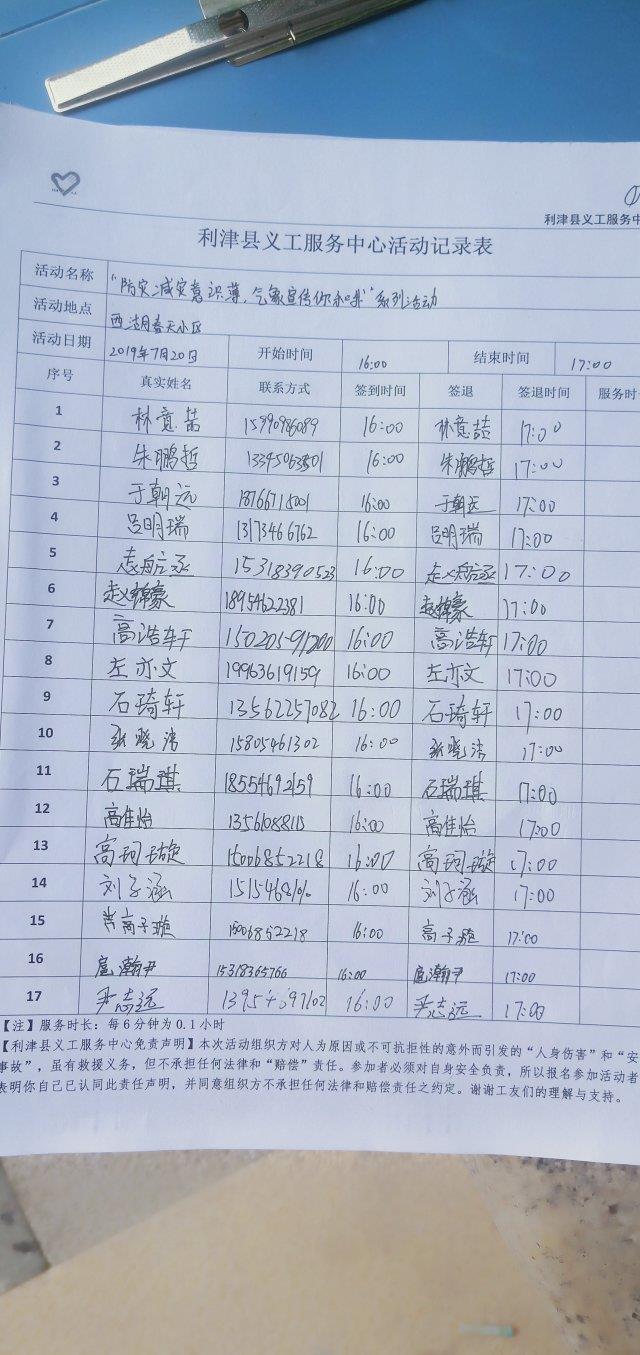 利津县义工服务中
利津县义工服务中心活动记录表
活动名称 "防灾减灾意识薄,气象宣传你和我"系列活动
活动地点 西湖春天小区
活动日期 2019年7月20日 开始时间 16:00 结束时间 17:00
序号 真实姓名 联系方式 签到时间 签退 签退时间 服务时
1 林意喆 15990986089 16:00 林意喆 17:00
2 朱鹏哲 16:00 朱鹏哲 17:00
3 于朝远 18766715001 16:00 于朝远 17:00
4 吕明瑞 13173466762 16:00 吕明瑞 17:00
5 15318390523 16:00 17:00
6 18954622381 16:00 17:00
7 高浩轩 16:00 高浩轩 17:00
8 左亦文 19963619159 16:00 左亦文 17:00
9 石琦轩 13562257082 16:00 石琦轩 17:00
10 张晓洁 15805461302 16:00 张晓洁 17:00
11 石瑞琪 18554692159 16:00 石瑞琪 17:00
12 高佳怡 16:00 高佳怡 17:00
13 高珂璇 15006852218 16:00 高珂璇 17:00
14 刘子涵 16:00 刘子涵 17:00
15 高子璇 15006852218 16:00 高子璇 17:00
16 扈瀚尹 15318365766 16:00 扈瀚尹 17:00
17 尹志远 16:00 尹志远 17:00
【注】服务时长:每6分钟为0.1小时
【利津县义工服务中心免责声明】本次活动组织方对人为原因或不可抗拒性的意外而引发的“人身伤害”和“安
事故”,虽有救援义务,但不承担任何法律和“赔偿”责任。参加者必须对自身安全负责,所以报名参加活动者
表明你自己已认同此责任声明,并同意组织方不承担任何法律和赔偿责任之约定。谢谢工友们的理解与支持。